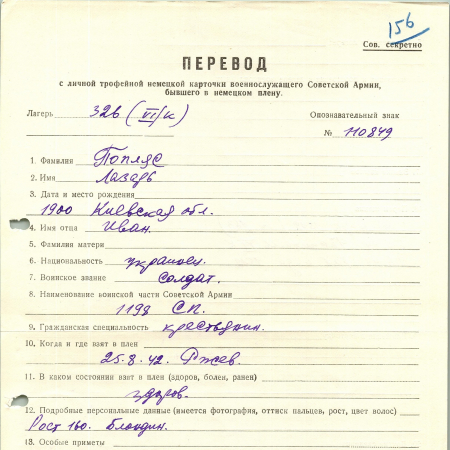 156
Сов. секретно
ПЕРЕВОД
с личной трофейной немецкой карточки военнослужащего Советской Армии,
бывшего в немецком плену.
Лагерь 326 (VI/K) Опознавательный знак
№ 110849
1. Фамилия Попляс
2. Имя Лазарь
3. Дата и место рождения
1900 Киевская обл.
4. Имя отца Иван.
5. Фамилия матери
6. Национальность украинец.
7. Воинское звание солдат.
8. Наименование воинской части Советской Армии
1198 СП.
9. Гражданская специальность крестьянин.
10. Когда и где взят в плен
25.8.42. Ржев.
11. В каком состоянии взят в плен (здоров, болен, ранен)
здоров.
12. Подробные персональные данные (имеется фотография, оттиск пальцев, рост, цвет волос)
Рост 160. Блондин.
13. Особые приметы